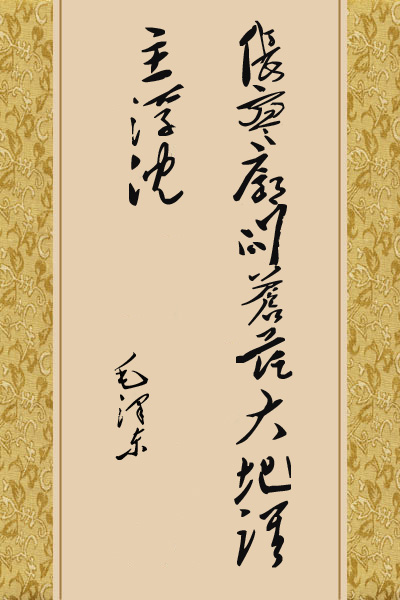 怅寥廓问苍茫大地谁
主浮沈
毛泽东